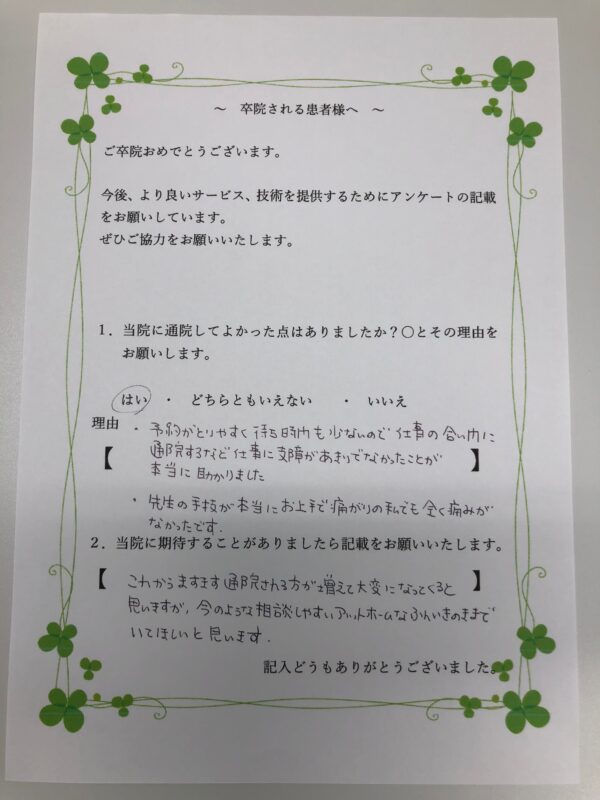 ～ 卒院される患者様へ ～
ご卒院おめでとうございます。
今後、より良いサービス、技術を提供するためにアンケートの記載
をお願いしています。
ぜひご協力をお願いいたします。
1．当院に通院してよかった点はありましたか？〇とその理由を
お願いします。
はい ・ どちらともいえない ・ いいえ
理由
・予約がとりやすく待ち時間も少ないので仕事の合い間に
【 通院するなど仕事に支障があまりでなかったことが 】
本当に助かりました
・先生の手技が本当にお上手で痛がりの私でも全く痛みが
なかったです.
2．当院に期待することがありましたら記載をお願いいたします。
【 これからますます通院される方が増えて大変になってくると 】
思いますが, 今のような相談しやすいアットホームなふんいきのままで
いてほしいと思います.
記入どうもありがとうございました。